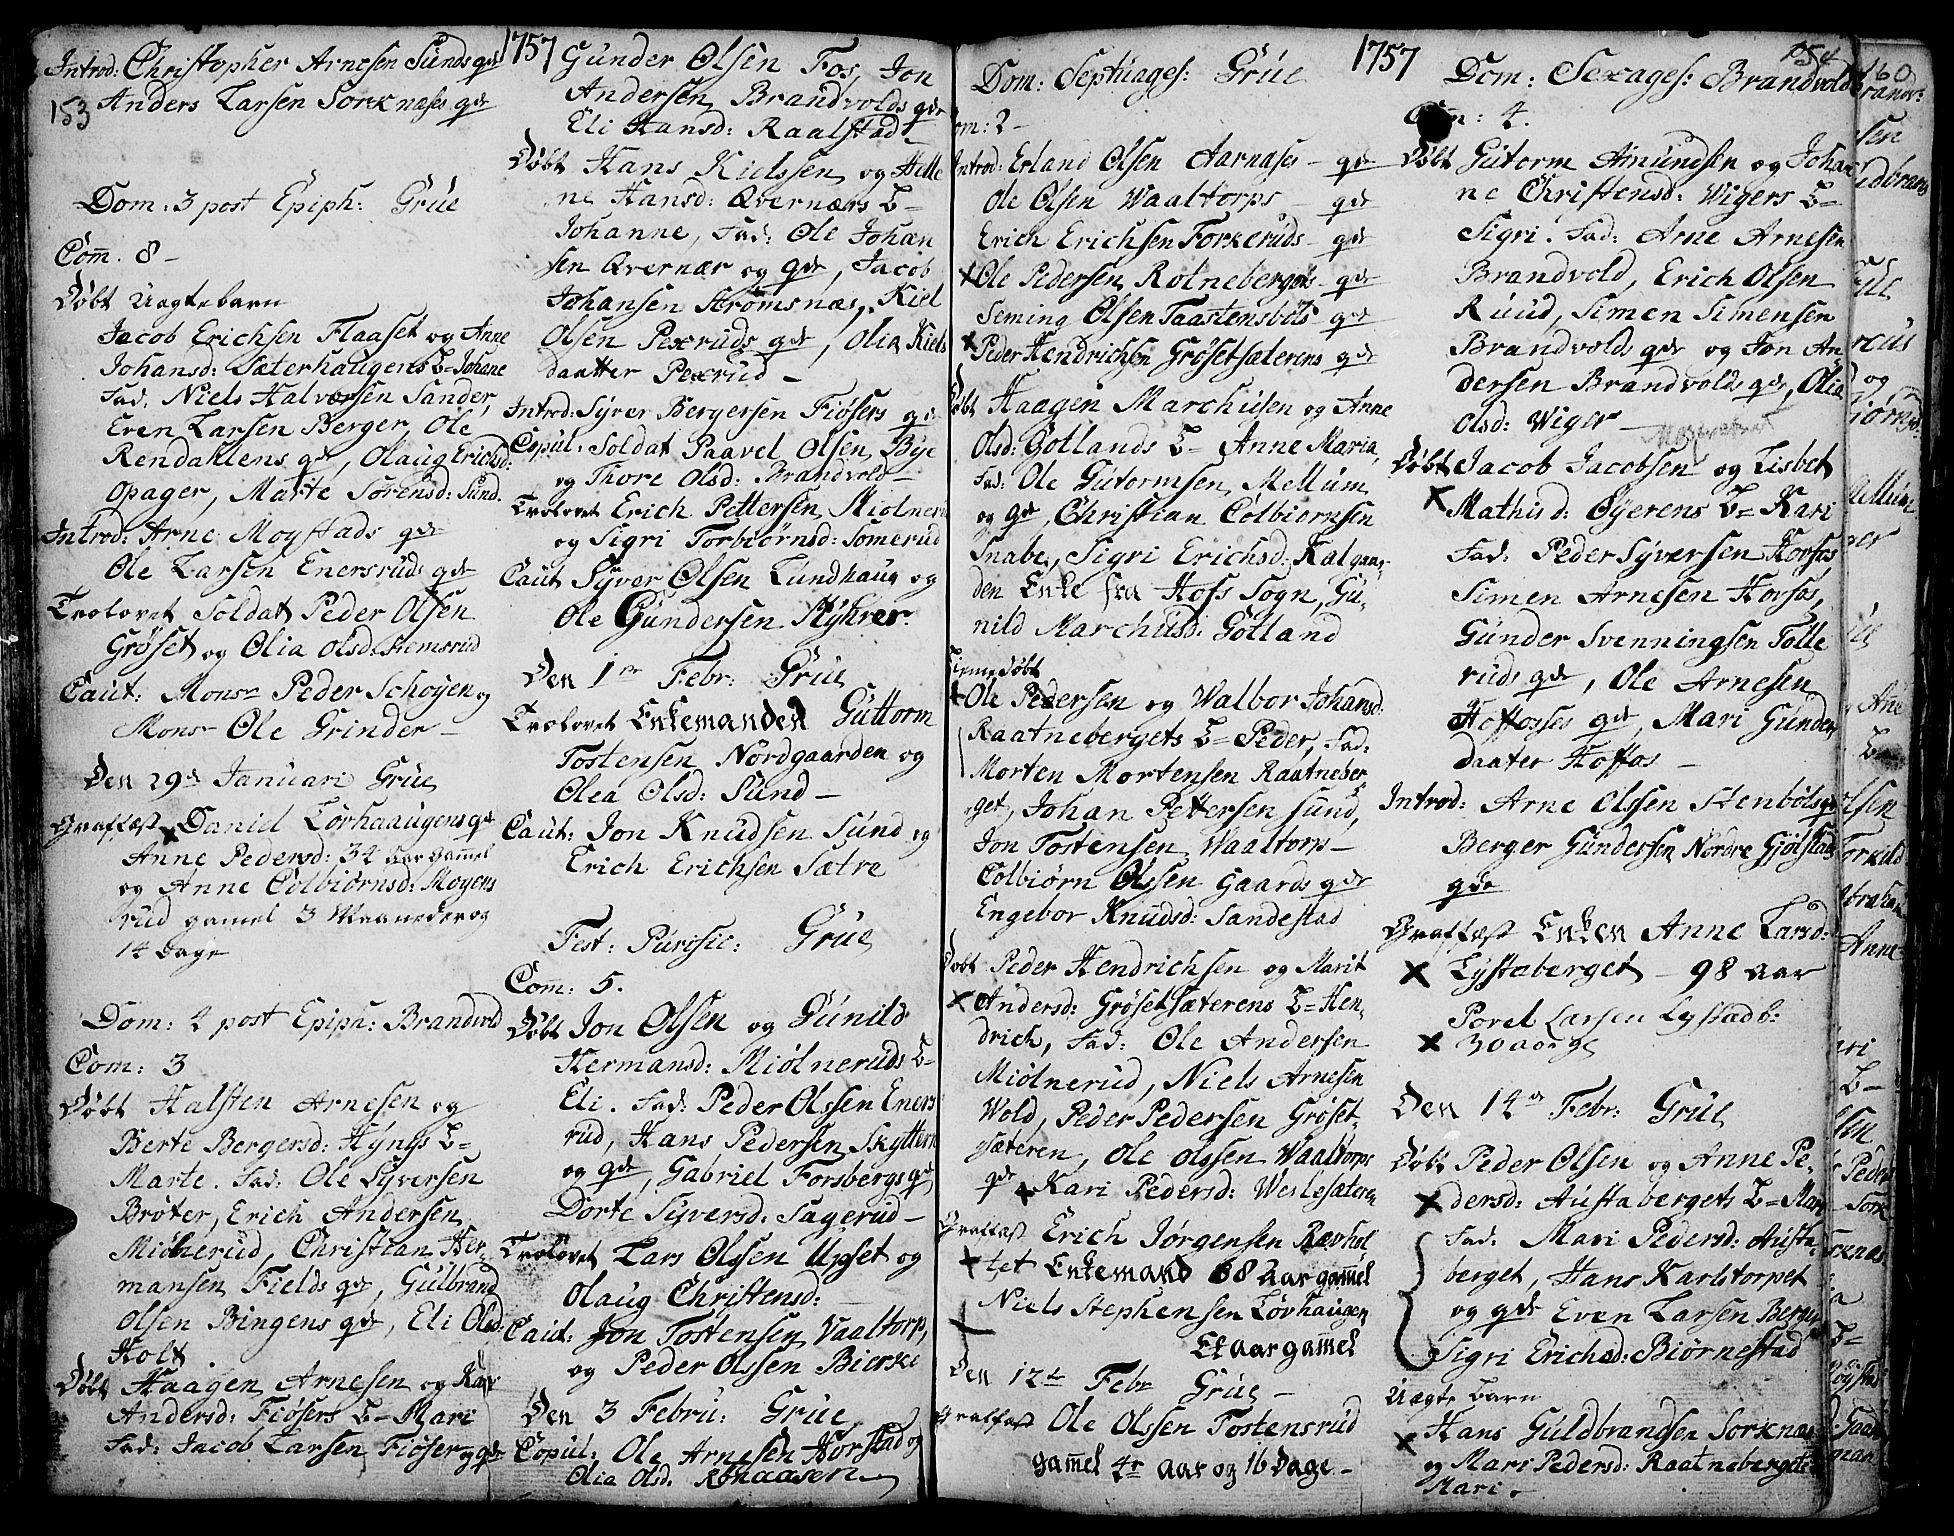 Introd: Christopher Arnesen Sunds qde
153 Anders Larsen Sorknæses qde
Dom: 3 post Epiph: Grue
Com̄. 8 -
Døbt Uægtebarn
Jacob Erichsen Flaaset og Anne
Johansd: Sæterhaugens B= Johane
Fad. Niels Halvorsen Sander,
Even Larsen Berger, Ole
Rendahlens qde, Olaug Erichsd:
Opager, Marte Sørensd: Sund.
Introd: Arne Moystads qde
Ole Larsen Enersruds qde
Trolovet Soldat Peder Olsen
Grøset og Olia Olsd: Hemsrud
Caut: Monsr Peder Schøyen og
Monsr Ole Grinder -
Den 29de Januari Grue
Graffæst Daniel Lørhaaugens qde
Anne Pedersd: 34 aar gammel
og Anne Colbiørnsd: Moyens
rud gamel 3 Maaneder og
14 Dage
Dom: 4 post Epiph: Brandvold
Com: 3
Døbt Halsten Arnesen og
Berte Bergersd: Hyngs B=
Marte. Fad: Ole Syversen
Brøter, Erich Andersen
Miølnerud, Christian Her-
mansen Fields qde, Gulbrand
Olsen Bingens qde, Eli Olsd:
Holt
Døbt Haagen Arnesen og Kari
Andersd: Fiøsers B= Mari
Fad: Jacob Larsen Fiøser og qde
1757
Gunder Olsen Fos, Jon
Andersen Brandvolds qde
Eli Hansd: Raalstad -
Døbt Hans Kielssen og Hele
ne Hansd: Qvernærs B=
Johanne, Fad: Ole Johan
sen Qvernær og qde, Jacob
Johansen Strømsnæs, Kiel
Olsen Pexruds qde, Olia Kiels
daatter Pexrud -
Introd: Syver Bergersen Fiøsers qde
Copul: Soldat Paavel Olsen Bye
og Thore Olsd: Brandvold -
Trolovet Erich Pettersen Miølneru
og Sigri Torbiørnsd: Somerud
Caut Syver Olsen Lundhaug og
Ole Gundersen Nyhrer.
Den 1de Febr: Grue
Trolovet Enkemanden Guttorm
Tostensen Nordgaarden og
Olea Olsd: Sund -
Caut: Jon Knudsen Sund og
Erich Erichsen Sætre
Fest: Purific: Grue
Com: 5.
Døbt Jon Olsen og Gunild
Hermansd: Miølneruds B=
Eli. Fad: Peder Olssen Eners
rud, Hans Pedersen Skyttern
og qde, Gabriel Forsbergs qde
Dorte Syversd: Sagerud -
Trolovet Lars Olssen Upset og
Olaug Christensd:
Caut: Jon Tostensen Vaaltorp,
og Peder Olssen Bierke
Den 3 Febru: Grue
Copul: Ole Arnesen Horstad og
Olia Olsd:
Dom: Septuages: Grue
Com: 2 -
Introd: Erland Olsen Aarnæses - qde
Ole Olsen Waaltorps - qde
Erich Erichsen Forkeruds - qde
Ole Pedersen Rotnebergets - qde
Seming Olsen Taastensbøls qde
Peder Hendrichsen Grøsetsæterens qde
Døbt Haagen Marchusen og Anne
Olsd: Gotlands B= Anne Maria,
Fad: Ole Gutormsen Mellum
og qde, Christian Colbiornsen
Snabe, Sigri Erichsd: Kalgaar-
den Enke fra Hofs Sogn, Gu-
nild Marchusd: Gotland
Hiemedøbt
Ole Pedersen og Walbor Johansd:
Raatnebergets B= Peder, Fad:
Morten Mortensen Raatneber
get, Johan Pettersen Sund,
Jon Tostensen Waaltorp -
Colbiørn Olssen Gaards qde
Engebor Knudsd: Sandestad
Døbt Peder Hendrichsen og Marit
Andersd: Grøsetsæterens B= Hen-
drich, Fad: Ole Andersen
Miølnerud, Niels Arnesen
Wold, Peder Pedersen Grøset-
sæteren, Ole Olssen Waaltorps
qde Kari Pedersd: Weslesæteren
Graffæst Erich Jørgensen Rævhol
tet Enkemand 68 Aar gammel
Niels Stephensen Lørhaugen
Et aar gam̄el
Den 12te Febr Grue -
Graffæst Ole Olssen Tostensrud
gam̄el 4re aar og 16 Dage -
1757
154
Dom: Sexages: Brandvold
Com: 4.
Døbt Gutorm Amundsen og Johan
ne Christensd: Wigers B=
Sigri. Fad: Arne Arnesen
Brandvold, Erich Olsen
Ruud, Simen Simensen
Brandvolds qde og Jon An-
dersen Brandvolds qde, Olia
Olsd: Wiger -
Døbt Jacob Jacobsen og Lisbet
Mathisd: Øyerens B= Kari
Fad: Peder Syversen Hofsos
Simen Arnesen Hofsos,
Gunder Svenningsen Tolle
ruds qde, Ole Arnesen
Hoffoses qde, Mari Gunder
daater Hoffos -
Introd: Arne Olssen Stenbøls qde
Berger Gundersen Nordre Gjølstads
qde
Graffæst Enken Anne Larsd:
Lystaberget - 98 aar
Povel Larsen Lystadb:
30 aar g
Den 14de Febr: Grue
Døbt Peder Olsen og Anne Pe-
dersd: Austabergets B= Mari
Fad: Mari Pedersd: Austa-
berget, Hans Karlstorpet
og qde Even Larsen Berger
Sigri Erichsd: Biørnestad
Uægte barn
Hans Guldbrandsen Sorknæs
og Mari Pedersd: Raatnebergets
Mari.
160